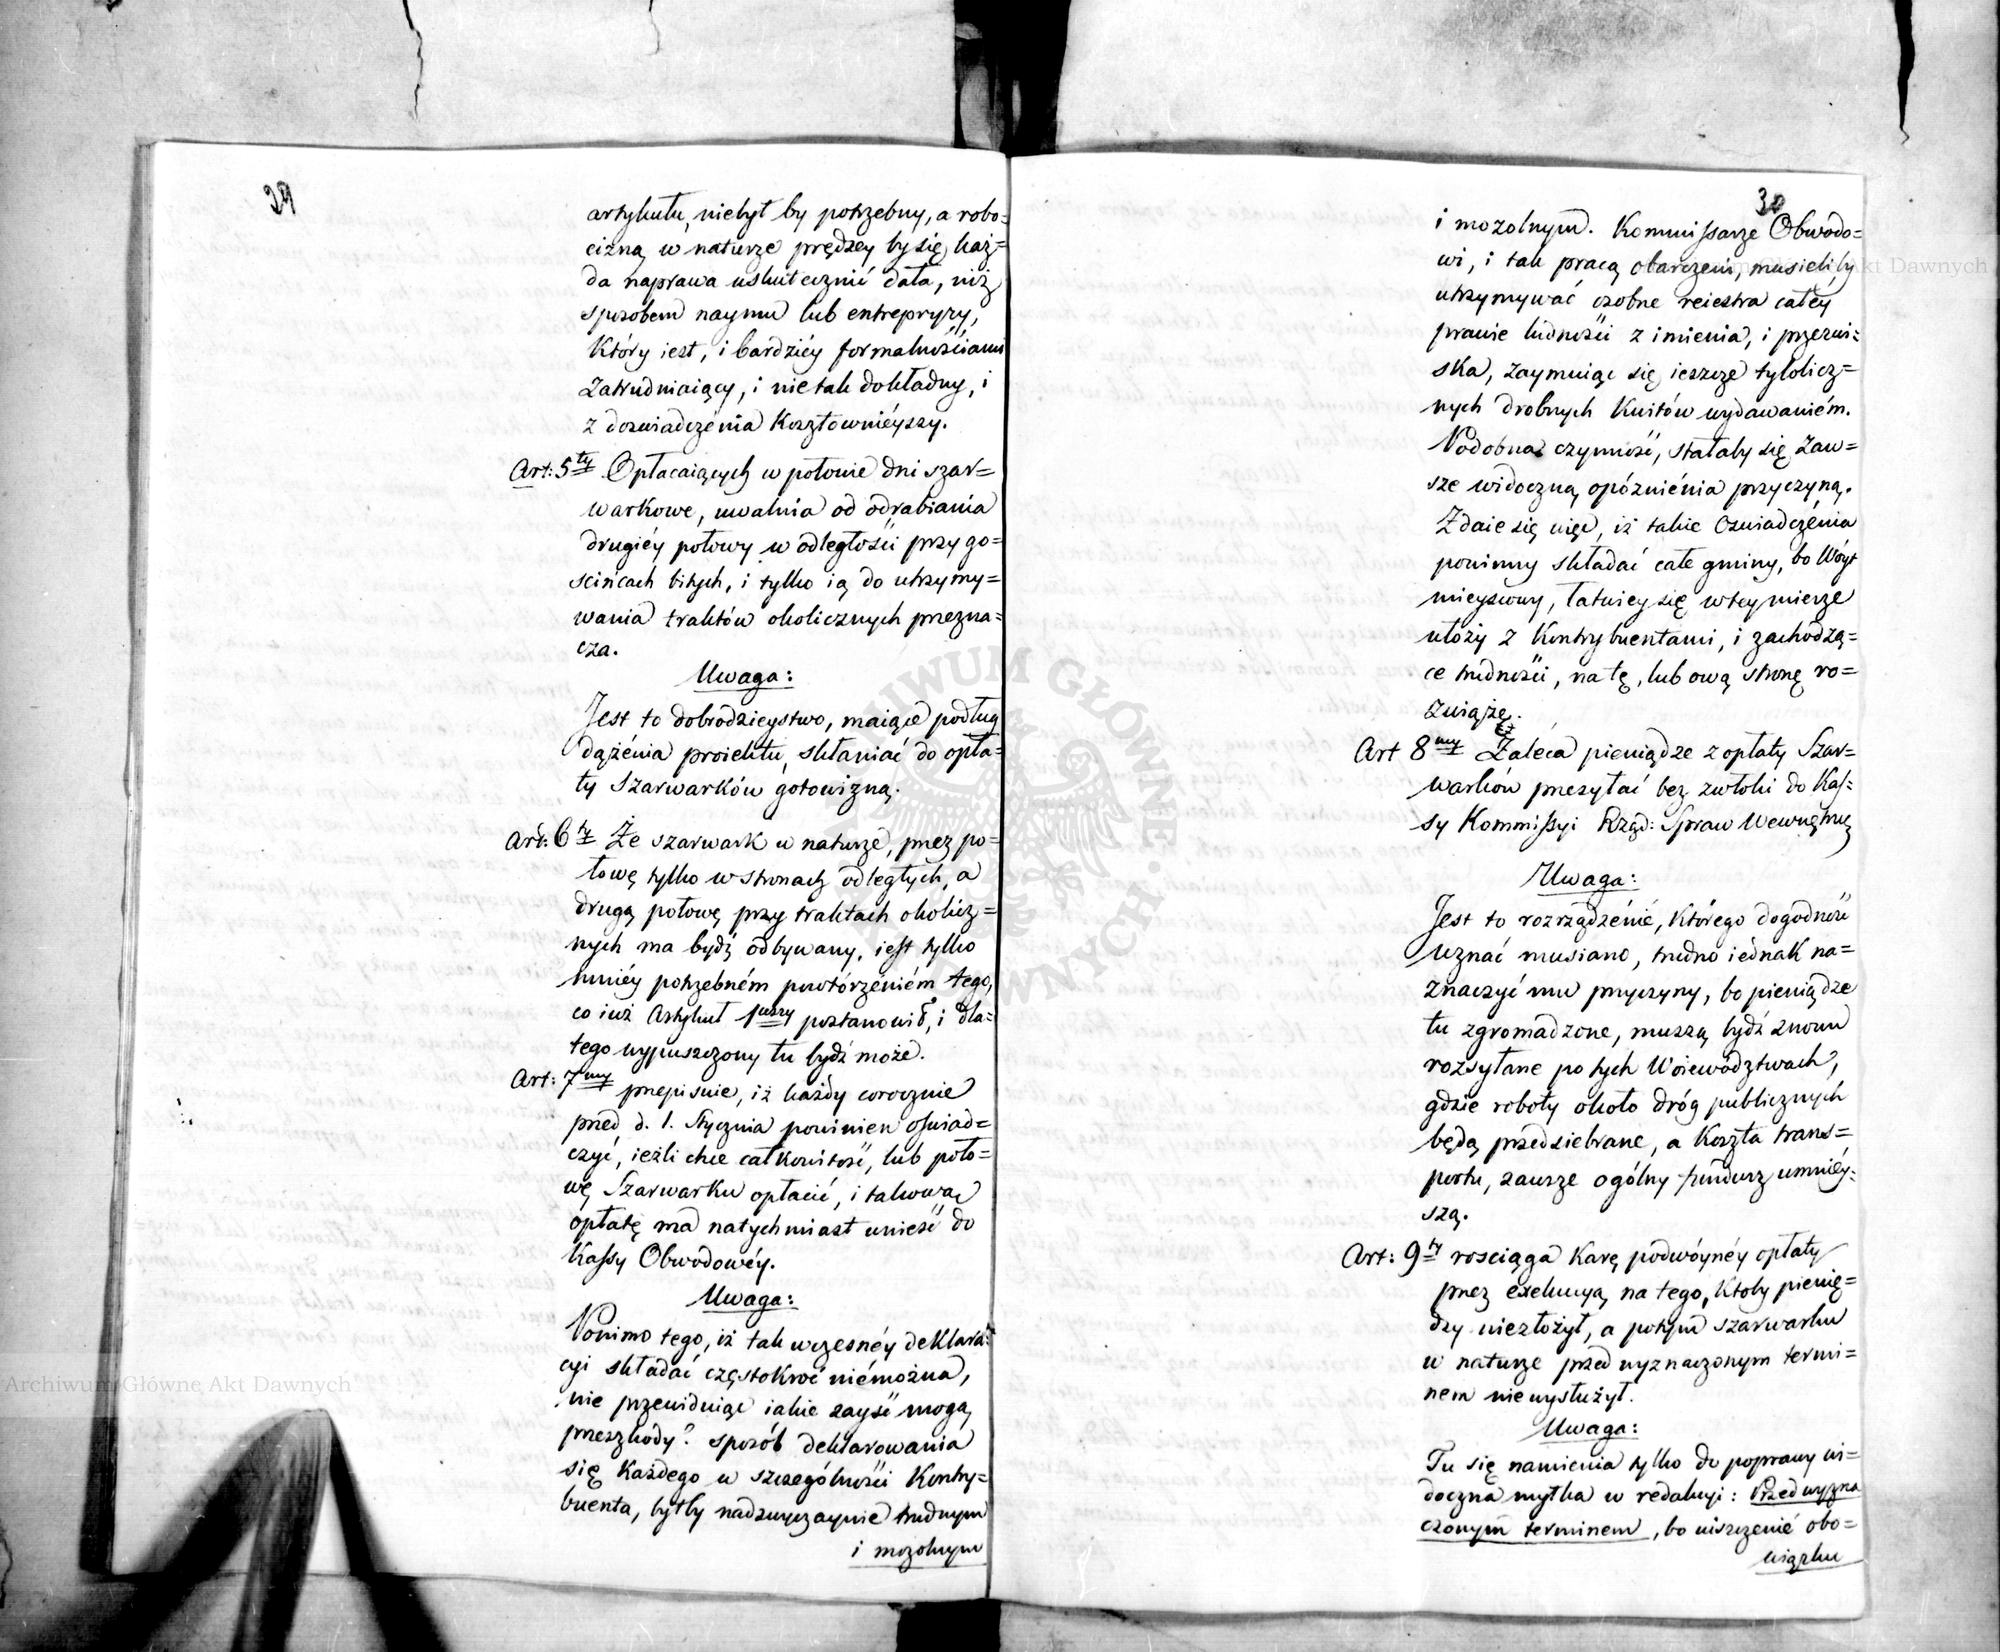 29
artykułu, niebył by potrzebny, a robo=
cizną w naturze prędzey by się każ=
da naprawa uskutecznić dała, niż
sposobem naymu lub entrepryzy,
który iest, i bardziéy formalnościami
zatrudniaiący, i nie tak dokładny, i
z doswiadczenia kosztownieyszy.
Art: 5ty Opłacaiących w połowie dni szar=
warkowe, uwalnia od odrabiania
drugiéy połowy w odległości przy go=
scińcach bitych, i tylko ią do utrzymy=
wania traktów okolicznych przezna=
cza.
Uwaga:
Jest to dobrodzieystwo, maiące podług
dążenia proiektu, skłaniać do opła=
ty Szarwarków gotowizną.
Art: 6ty Że szarwark w naturze, przez po=
łowę tylko w stronach odległych, a
drugą połowę przy traktach okolicz=
nych ma bydź odbywany, iest tylko
mniéy potrzebném powtórzeniém tego,
co iuż Artykuł 1wszy postanowił, i dla=
tego wypuszczony tu bydź może.
Art: 7my przepisuie, iż każdy corocznie
przed d. 1. Stycznia powinien oswiad=
czyć, ieźli chce całkowitość, lub poło=
wę Szarwarku opłacić, i takową
opłatę ma natychmiast wnieść do
Kassy Obwodowéy.
Uwaga:
Pomimo tego, iż tak wczesnéy deklara=
cyi składać częstokroć niemożna,
nie przewiduiąc iakie zayść mogą
przeszkody? sposób deklarowania
się każdego w szczególności Kontry=
buenta, byłby nadzwyczaynie trudnym
i mozolnym
30
i mozolnym. Kommissarze Obwodo=
wi, i tak pracą obarczeni, musieliby
utrzymywać osobne reiestra całéy
prawie ludności z imienia, i przezwi=
ska, zaymuiąc się ieszcze tylolicz=
nych drobnych kwitów wydawaniém.
Podobna czynność, stałaby się zaw=
sze widoczną opóźnienia przyczyną.
Zdaie się więc, iż takie oswiadczenia
powinny składać całe gminy, bo Wóyt
mieyscowy, łatwiey się w tey mierze
ułoży z Kontrybuentami, i zachodzą=
ce trudności, na tę, lub ową stronę ro=
zwiąże.
Art 8my Zaleca pieniądze z opłaty Szar=
warków przesyłać bez zwłoki do Kas=
sy Kommissyi Rząd: Spraw Wewnętrz
Uwaga:
Jest to rozrządzenie, którego dogodność
uznać musiano, trudno iednak na=
znaczyć mu przyczyny, bo pieniądze
tu zgromadzone, muszą bydź znowu
rozsyłane po tych Woiewództwach,
gdzie roboty około dróg publicznych
będą przedsiebrane, a koszta trans=
portu, zawsze ogólny fundusz umniéy=
szą.
Art: 9ty rosciąga karę podwóynéy opłaty
przez exekucyą na tego, ktoby pienię=
dzy niezłożył, a potym szarwarku
w naturze przed wyznaczonym termi=
nem niewysłużył.
Uwaga:
Tu się namienia tylko do poprawy wi=
doczna myłka w redakcyi: Przed wyzna
czonym terminem, bo uiszczenie obo=
wiązku